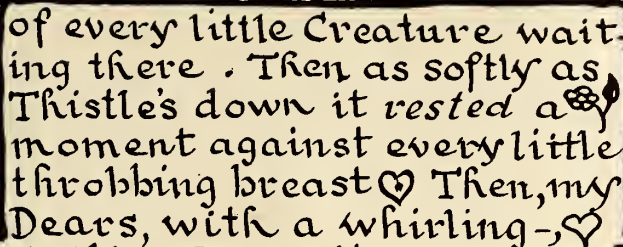 of every little Creature wait-
ing there . Then as softly as
Thistle's down it rested a
moment against every little
throbbing breast Then, my
Dears, with a whirling-,